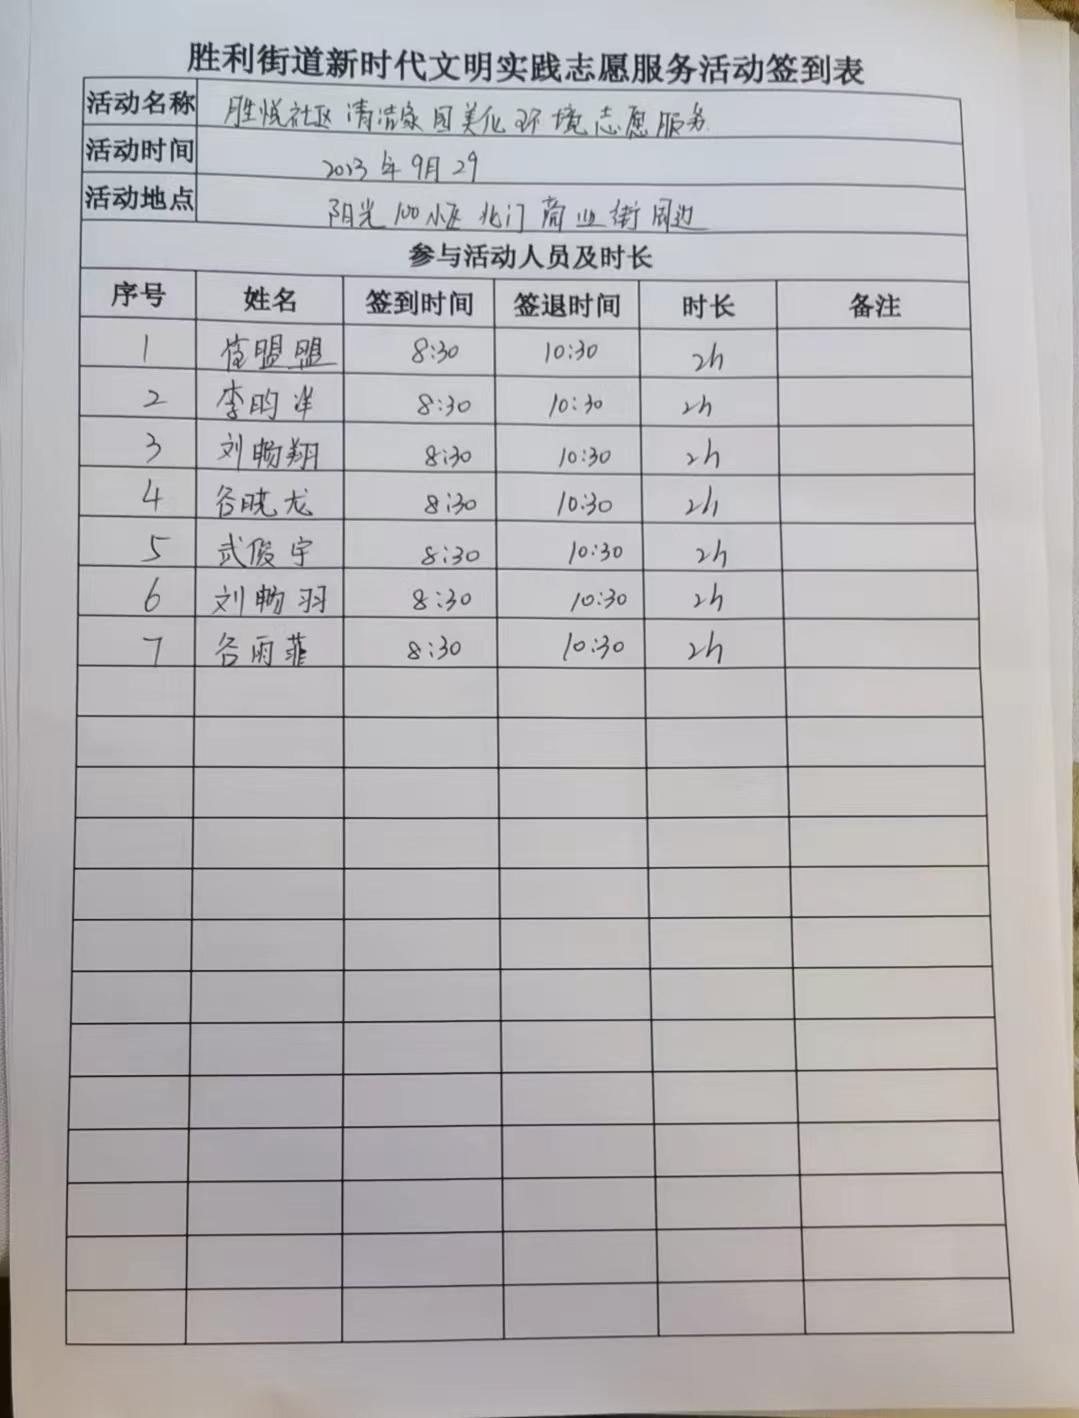 胜利街道新时代文明实践志愿服务活动签到表
活动名称 胜悦社区清洁家园美化环境志愿服务
活动时间 2023年9月29
活动地点 阳光100小区北门商业街周边
参与活动人员及时长
序号 姓名 签到时间 签退时间 时长 备注
1 盟盟 8:30 10:30 2h
2 李昀洋 8:30 10:30 2h
3 刘畅翔 8:30 10:30 2h
4 谷晓龙 8:30 10:30 2h
5 武俊宇 8:30 10:30 2h
6 刘畅羽 8:30 10:30 2h
7 谷雨菲 8:30 10:30 2h